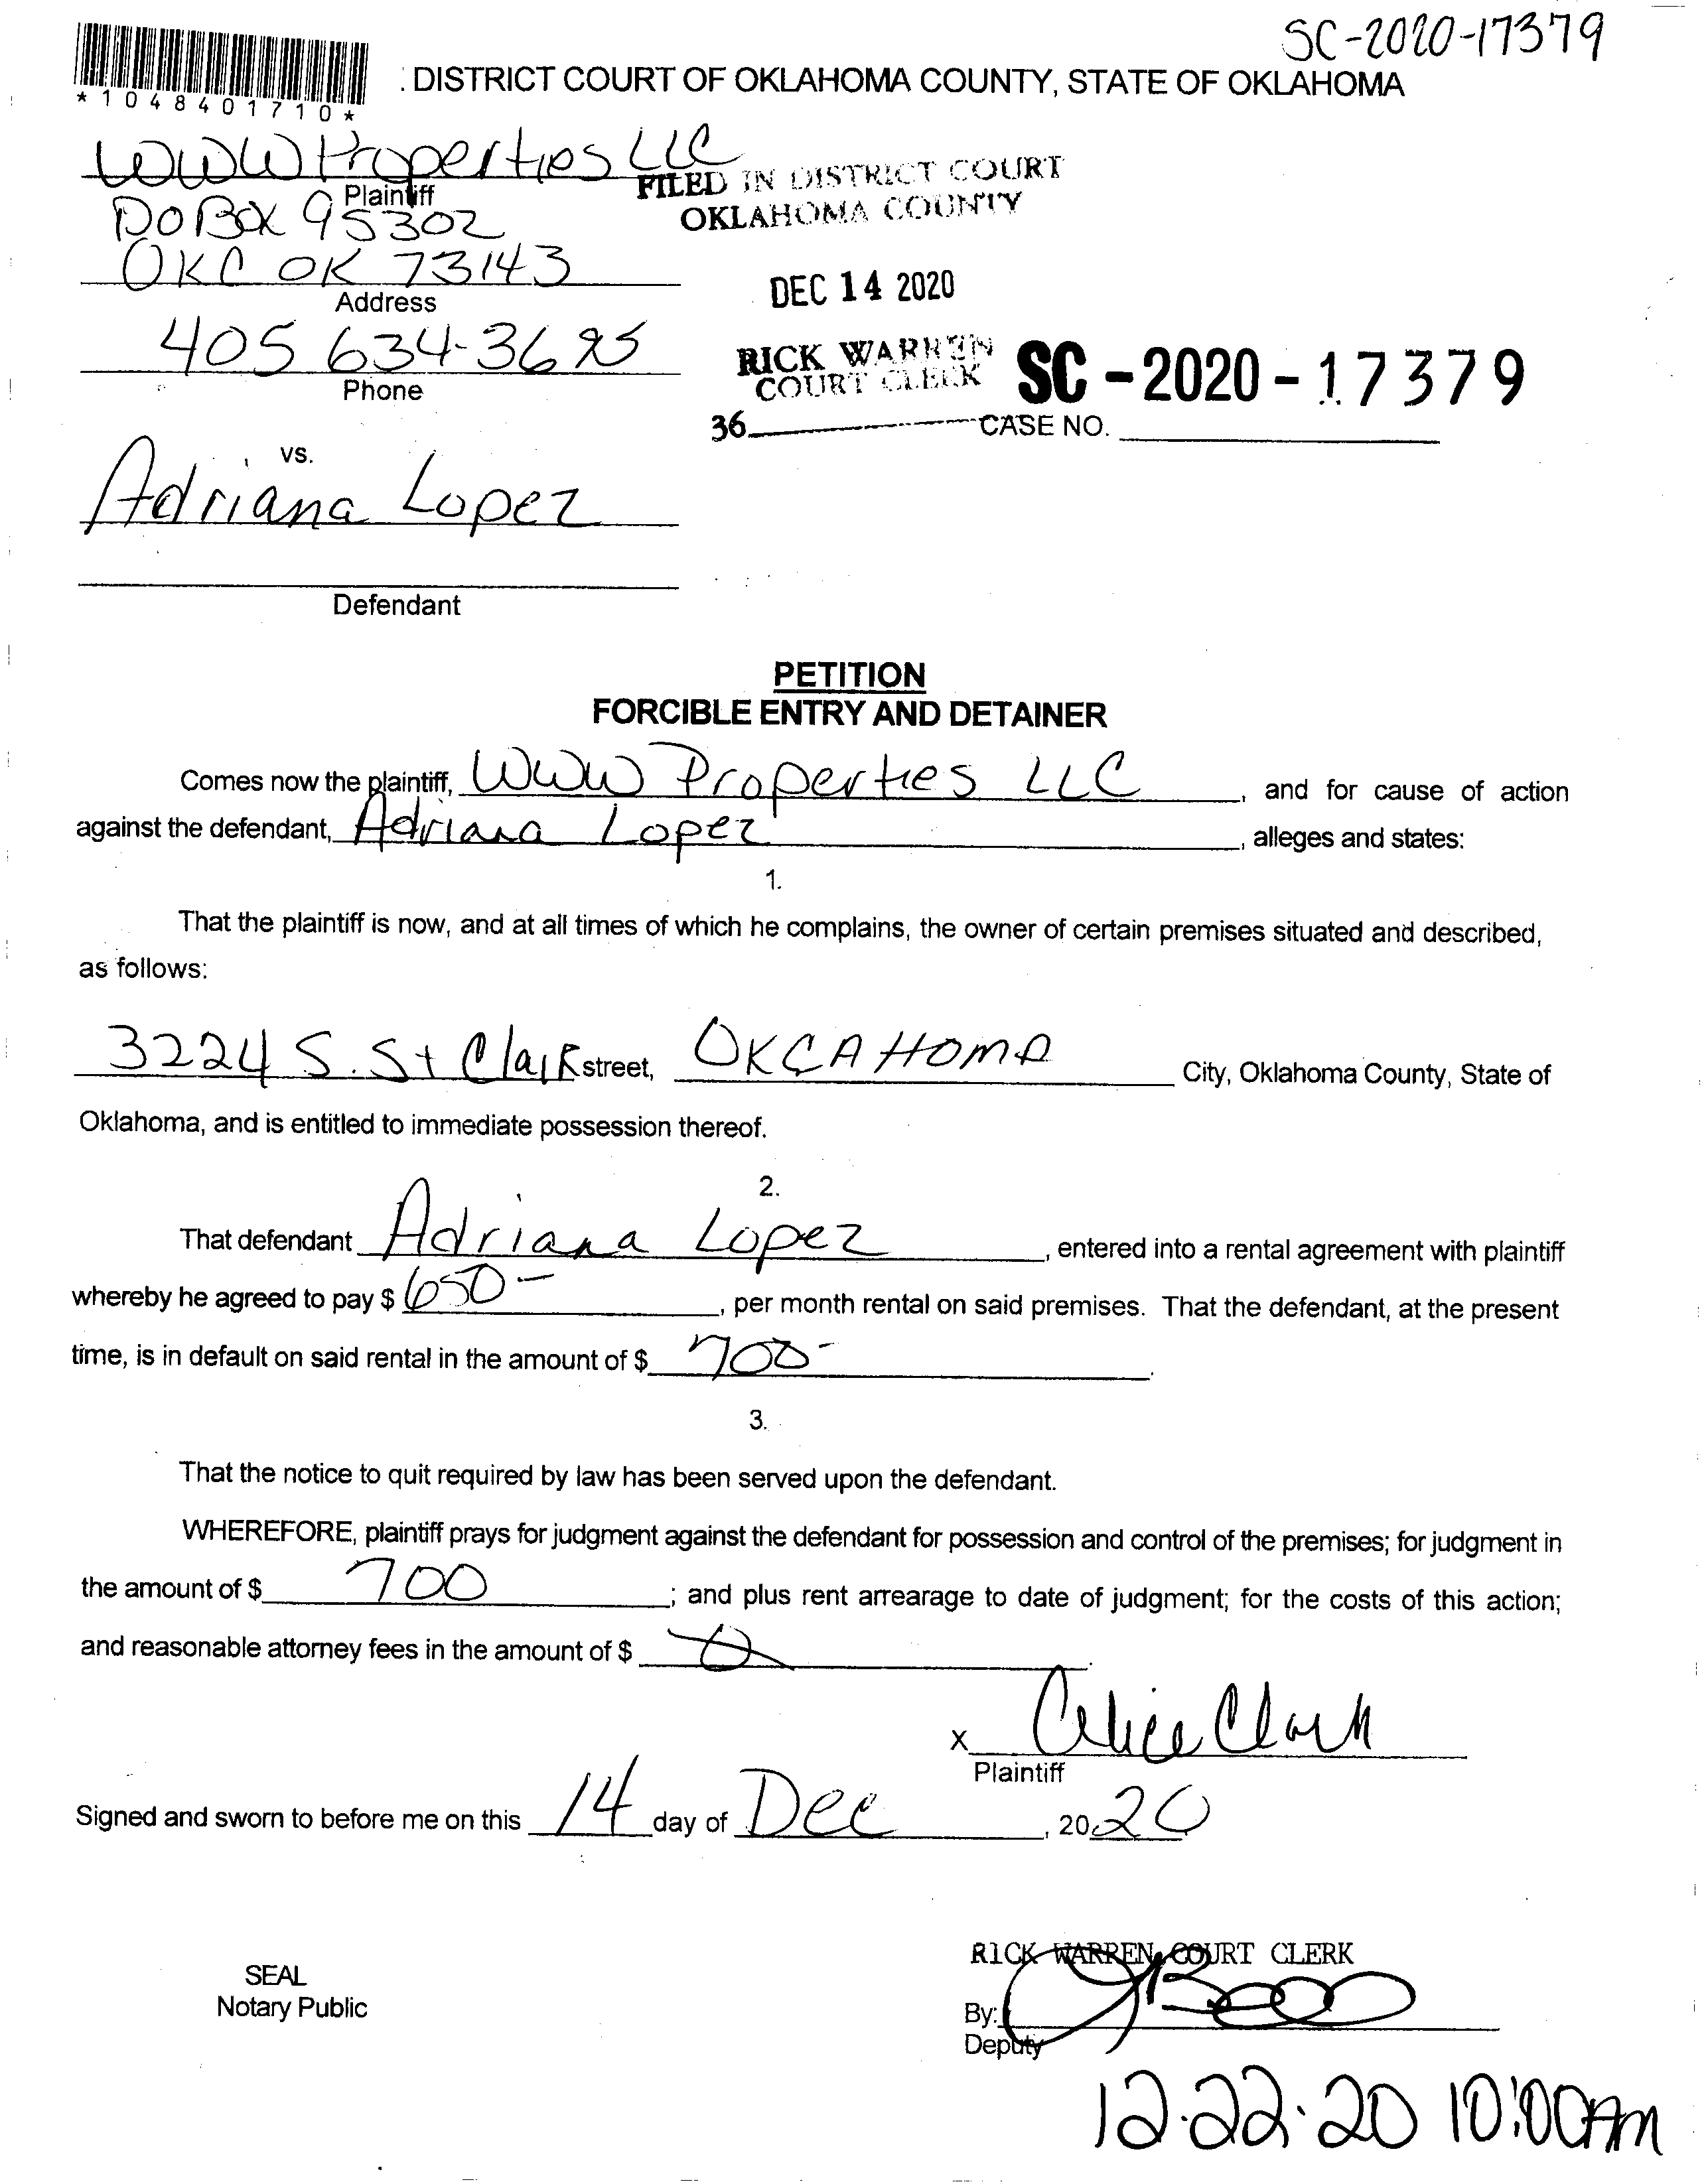 SC-2020-17379
: DISTRICT COURT OF OKLAHOMA COUNTY, STATE OF OKLAHOMA
*1048401710*
WWW Properties LLC
Plaintiff
FILED IN DISTRICT COURT
OKLAHOMA COUNTY
PO Box 95302
OKC OK 73143
Address
DEC 14 2020
405 634-3695
Phone
RICK WARREN
COURT CLERK
SC-2020-17379
36
CASE NO.
vs.
Adriana Lopez
Defendant
PETITION
FORCIBLE ENTRY AND DETAINER
Comes now the plaintiff, WWW Properties LLC, and for cause of action
against the defendant, Adriana Lopez, alleges and states:
1.
That the plaintiff is now, and at all times of which he complains, the owner of certain premises situated and described,
as follows:
3224 S. St Clair street, OKCAHOMA City, Oklahoma County, State of
Oklahoma, and is entitled to immediate possession thereof.
2.
That defendant Adriana Lopez, entered into a rental agreement with plaintiff
whereby he agreed to pay $ 650-, per month rental on said premises. That the defendant, at the present
time, is in default on said rental in the amount of $ 700-.
3.
That the notice to quit required by law has been served upon the defendant.
WHEREFORE, plaintiff prays for judgment against the defendant for possession and control of the premises; for judgment in
the amount of $ 700; and plus rent arrearage to date of judgment; for the costs of this action;
and reasonable attorney fees in the amount of $ 0.
x Clark
Plaintiff
Signed and sworn to before me on this 14 day of Dec, 2020
RICK WARREN, COURT CLERK
SEAL
Notary Public
By:
Deputy
12.22.20 10:00AM